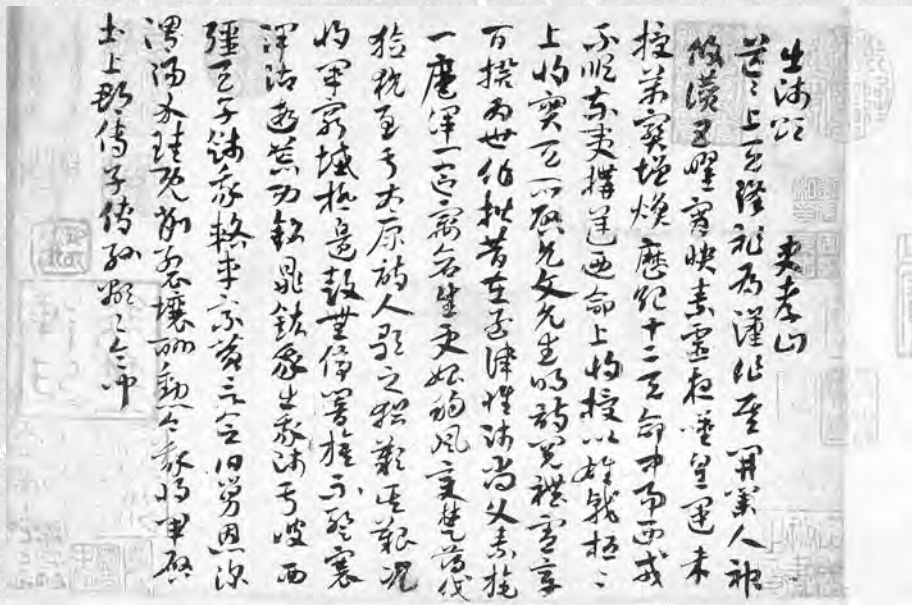 出師頌 史孝山
茫〻上天降祚為漢作基開業人神
攸讚五曜宵映素靈夜歎皇運未
授萬寶增煥歷紀十二天命中易西戎
不順東夷構逆西命上將授以雄戟桓〻
上將實天所啟允文允武明詩閱禮憲章
百揆為世作楷昔在孟津惟師尚父素旄
一麾渾一區宇蒼生更始朔風變楚薄伐
獫狁至于太原詩人歌之猶歎其艱況
我將軍窮域極邊鼓無停響旌不蹔褰
澤沾遐荒功銘鼎鉉我出我師于彼西
疆天子餞我輅車乘黃言念伯舅恩深
渭陽介珪既削裂壤酬勳今我將軍啟
土上郡傳子傳孫顯〻令問